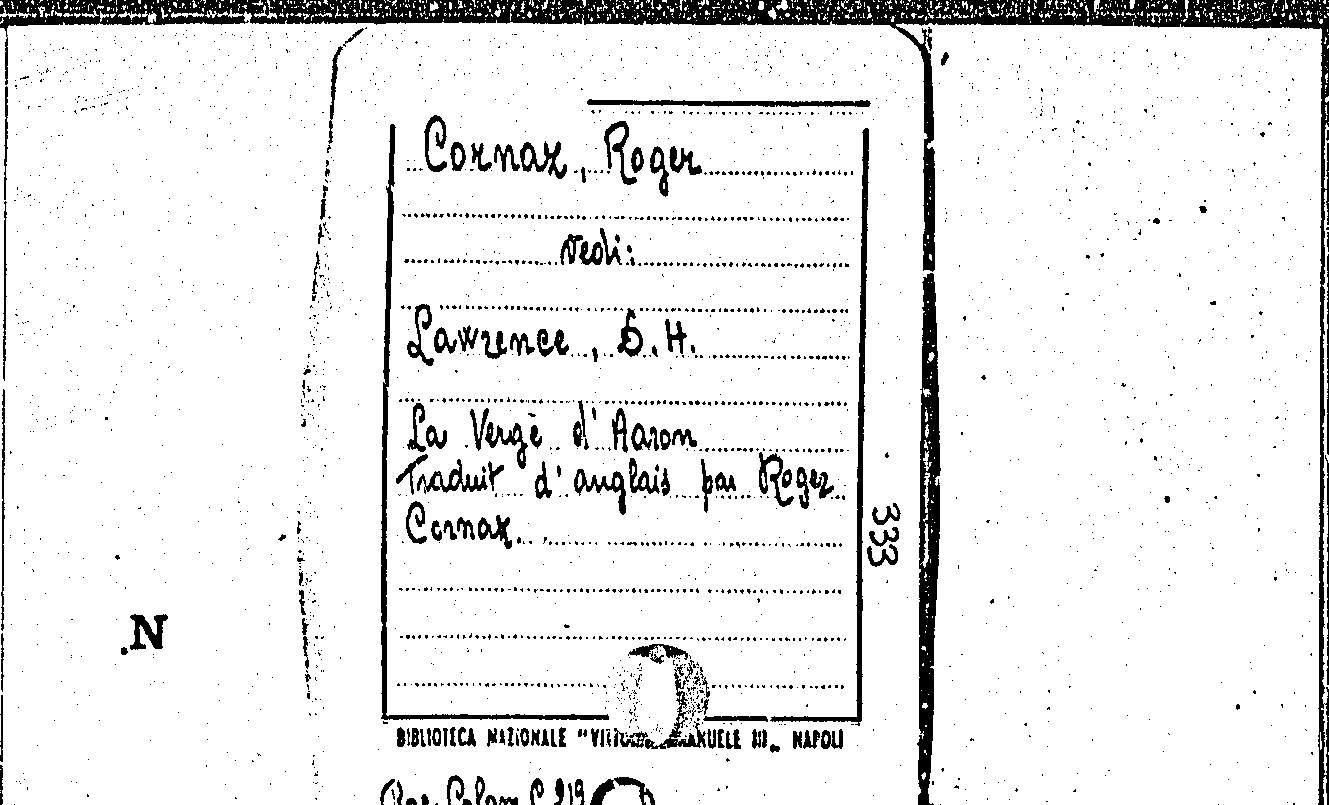 Cornaz, Roger
vedi:
Lawrence, D.H.
La Verge d'Aaron
Traduit d'anglais par Roger
Cornaz.
333
N
BIBLIOTECA NAZIONALE "VITTORIO EMANUELE III„ NAPOLI